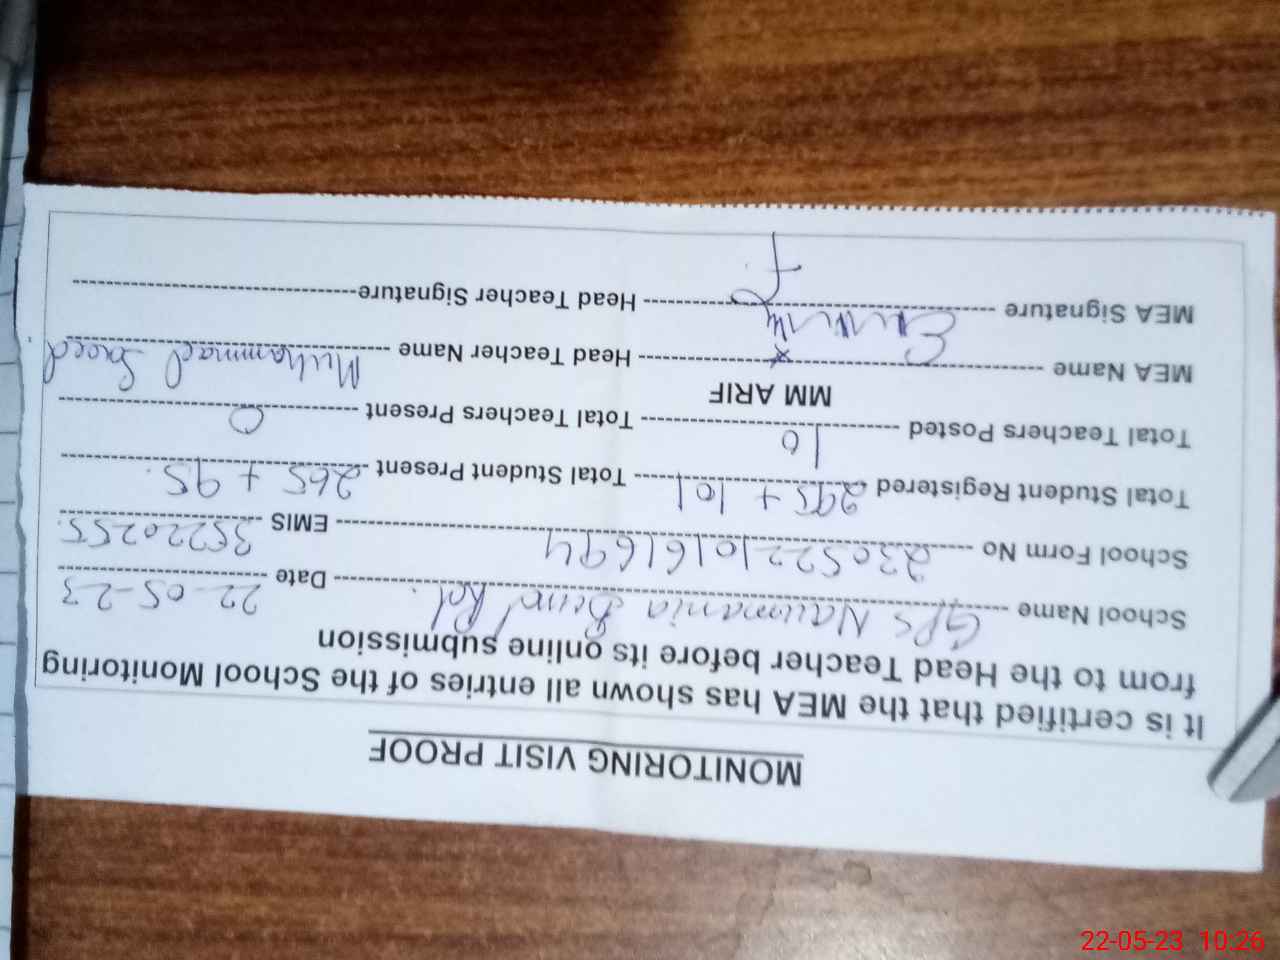 MONITORING VISIT PROOF
It is certified that the MEA has shown all entries of the School Monitoring
from to the Head Teacher before its online submission
School Name GPS Naumania Bund Rd. Date 22-05-23
School Form No 2305221016 1694 EMIS 35220255
Total Student Registered 295 + 101 Total Student Present 265 + 95
Total Teachers Posted 10 Total Teachers Present
MM ARIF
MEA Name Head Teacher Name Muhammad Saeed
MEA Signature Head Teacher Signature
22-05-23 10:26